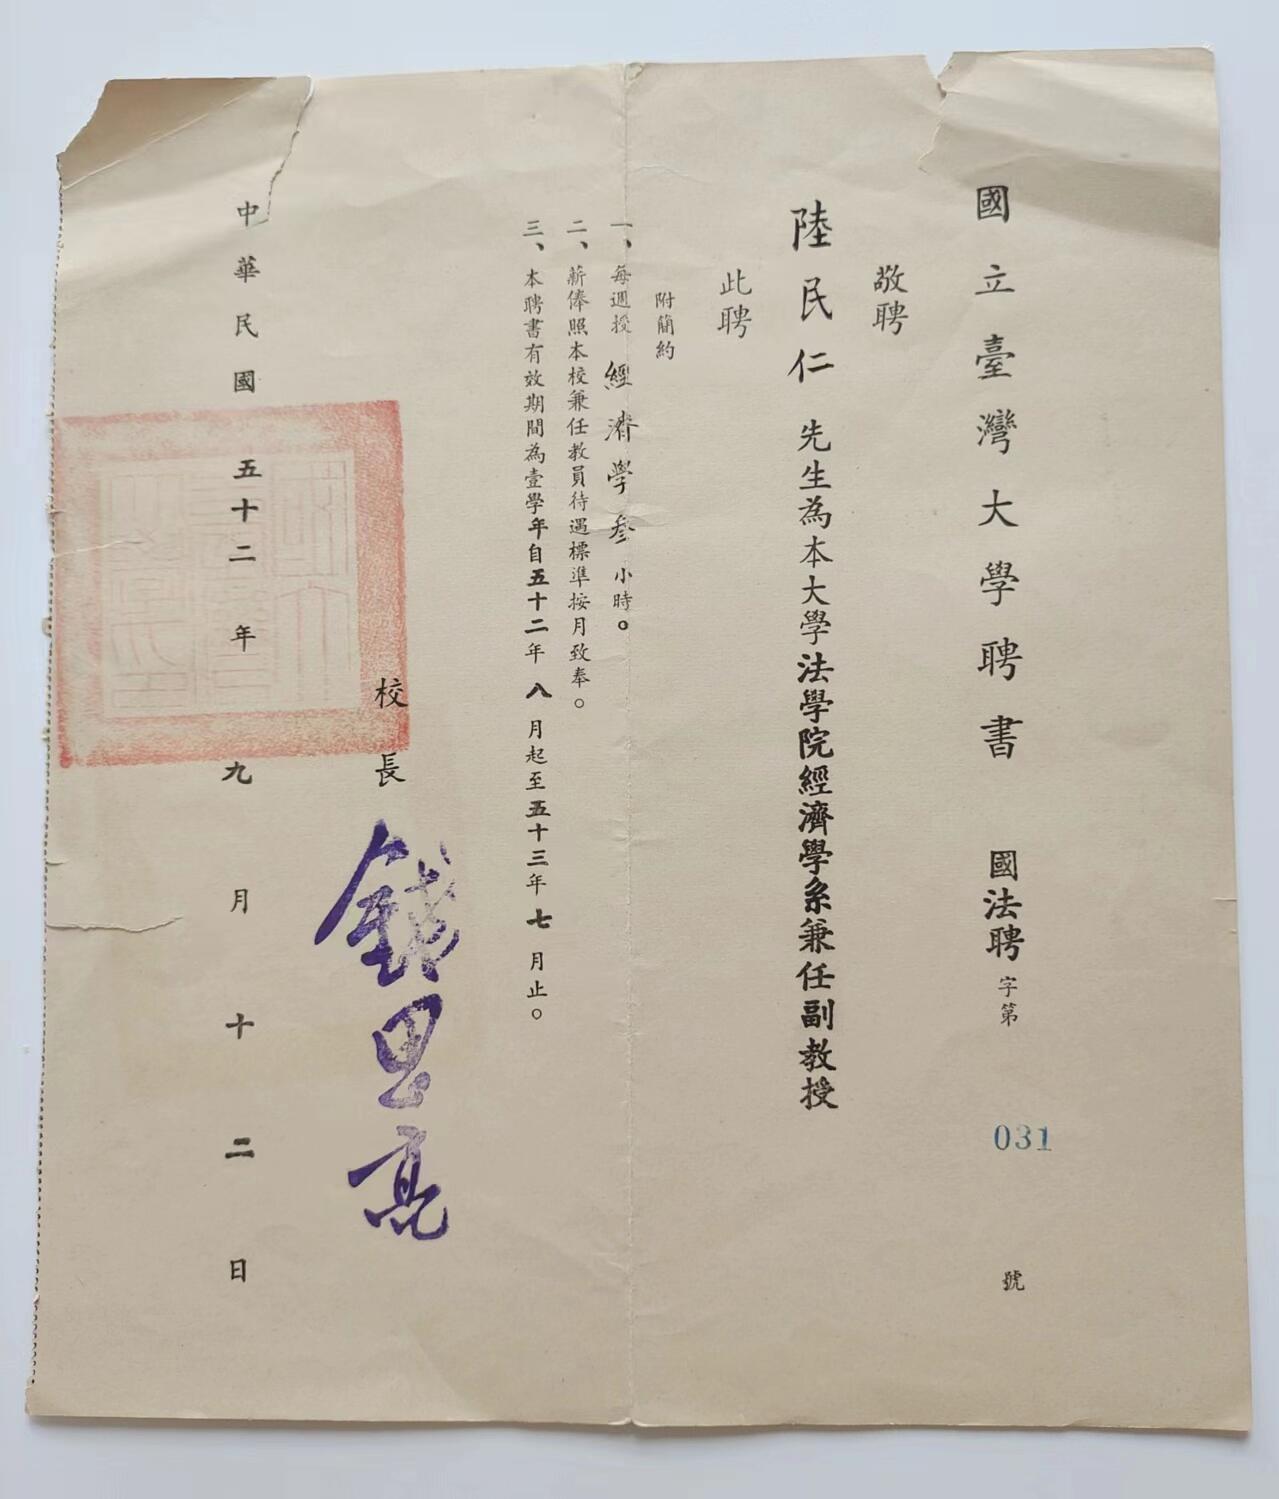 國立臺灣大學聘書 國法聘字第031號
敬聘
陸民仁 先生為本大學法學院經濟學系兼任副教授
此聘
附簡約
一、每週授 經濟學叁 小時。
二、薪俸照本校兼任教員待遇標準按月致奉。
三、本聘書有效期間為壹學年自五十二年八月起至五十三年七月止。
校長 錢思亮
中華民國五十二年九月十二日